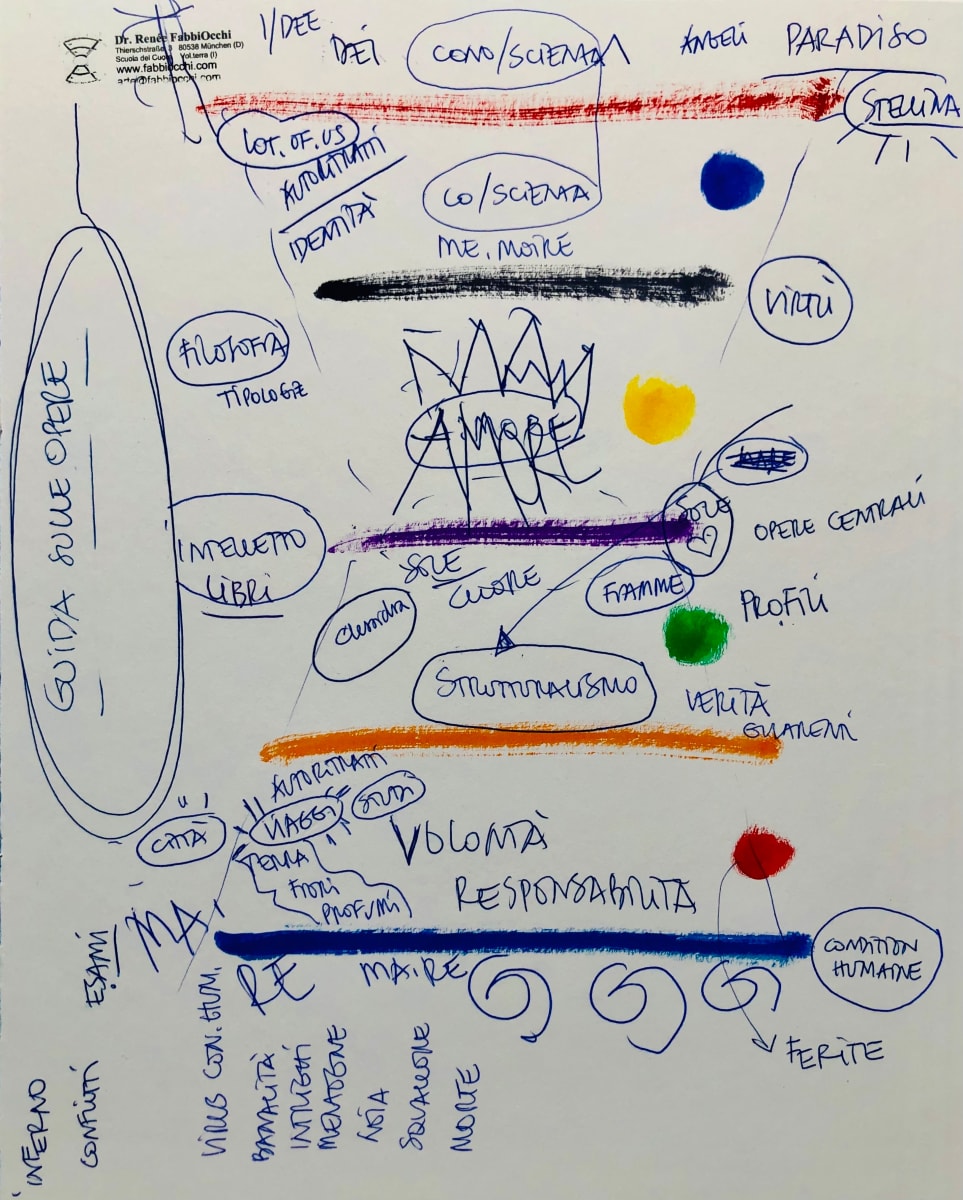 Dr. Renée FabbiOcchi
Thierschstraße 3 80538 München (D)
Scuola del Cuore Volterra (I)
www.fabbiocchi.com
arte@fabbiocchi.com
I/DEE
DEI
CONO/SCIENZA
ANGELI
PARADISO
STELLINA
LOT.OF.US
AUTORITRATTI
IDENTITÀ
CO/SCIENZA
ME.MOIRE
VIRTÙ
FILOSOFIA
TIPOLOGIE
AMORE
GUIDA SULLE OPERE
INTELLETTO
LIBRI
SOLE
OPERE CENTRALI
SOLE
CUORE
FIAMME
PROFILI
STRUTTURALISMO
VERITÀ
AUTORITRATTI
VIAGGI
STUDI
CITTÀ
TERRA
FIORI
PROFUMI
VOLONTÀ
RESPONSABILITÀ
MA
RE
MA.RE
CONDITION
HUMAINE
FERITE
ESAMI
INFERNO
CONFLITTI
VIRUS CON.HUM.
BANALITÀ
INTRIGHI
MENZOGNE
NOIA
SQUALLORE
MORTE